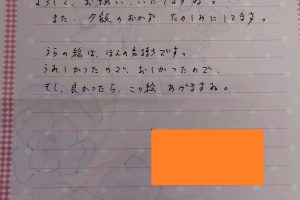 よろしく、お願い、いたしますね。
また、夕飯のおかず、たのしみにしてます。
うらの絵は、ほんの気持です。
うれしかったので、おしかったので、
もし、良かったら、この絵あげますね。